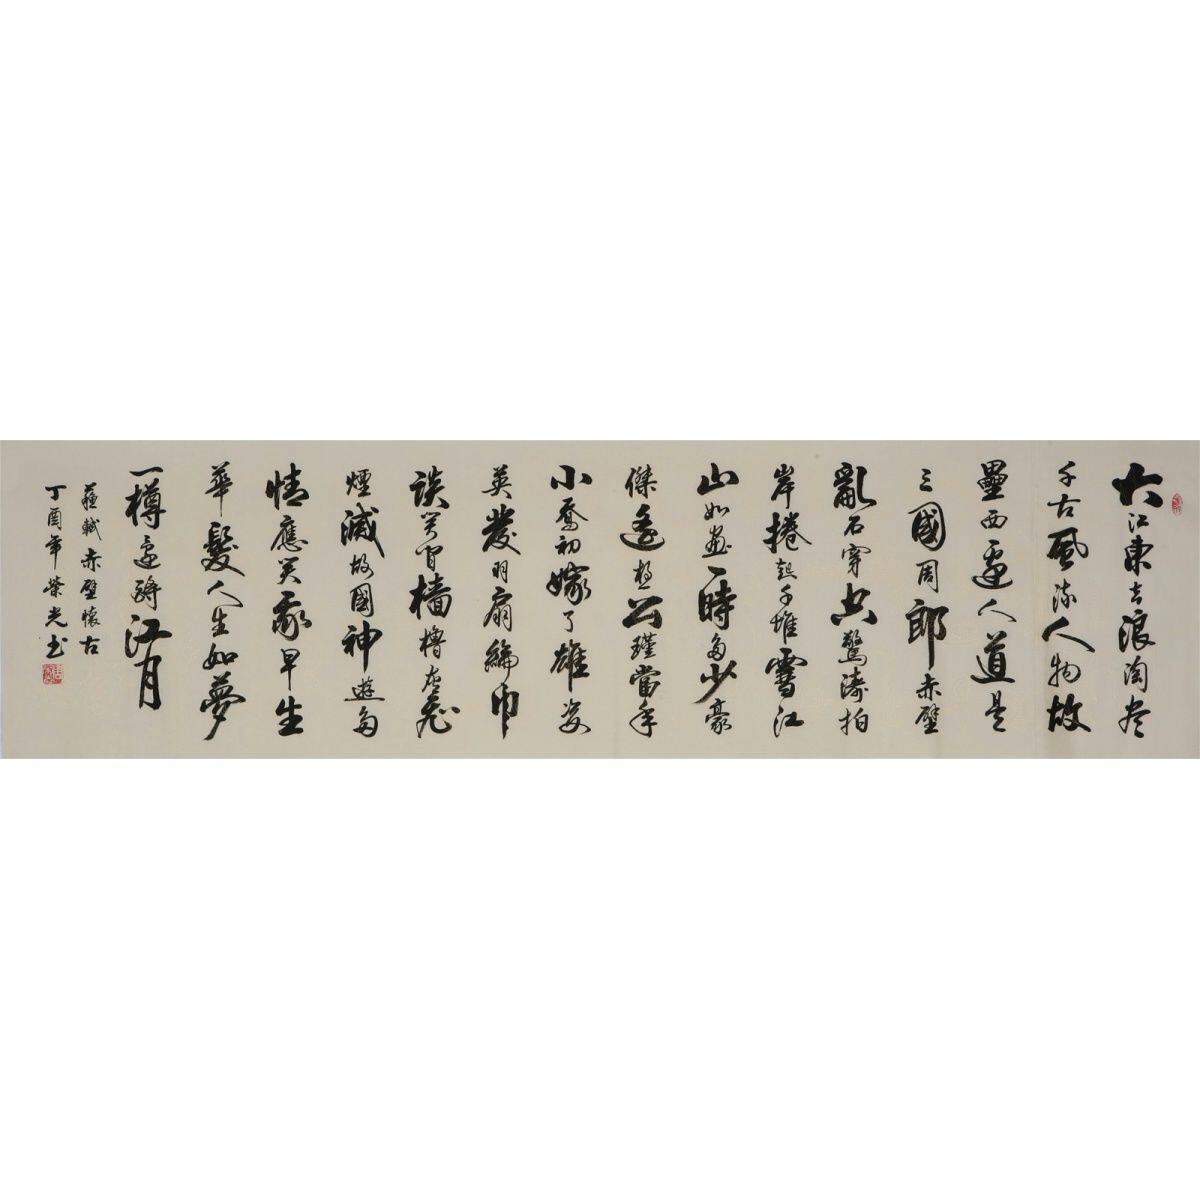 大江東去浪淘尽
千古風流人物故
壘西邊人道是
三國周郎赤壁
亂石穿空驚濤拍
岸捲起千堆雪江
山如畫一時多少豪
傑遥想公瑾當年
小喬初嫁了雄姿
英發羽扇綸巾
談笑间檣櫓灰飛
煙滅故國神遊多
情應笑我早生
華髮人生如夢
一樽還酹江月
蘇軾赤壁懷古
丁酉年榮光书